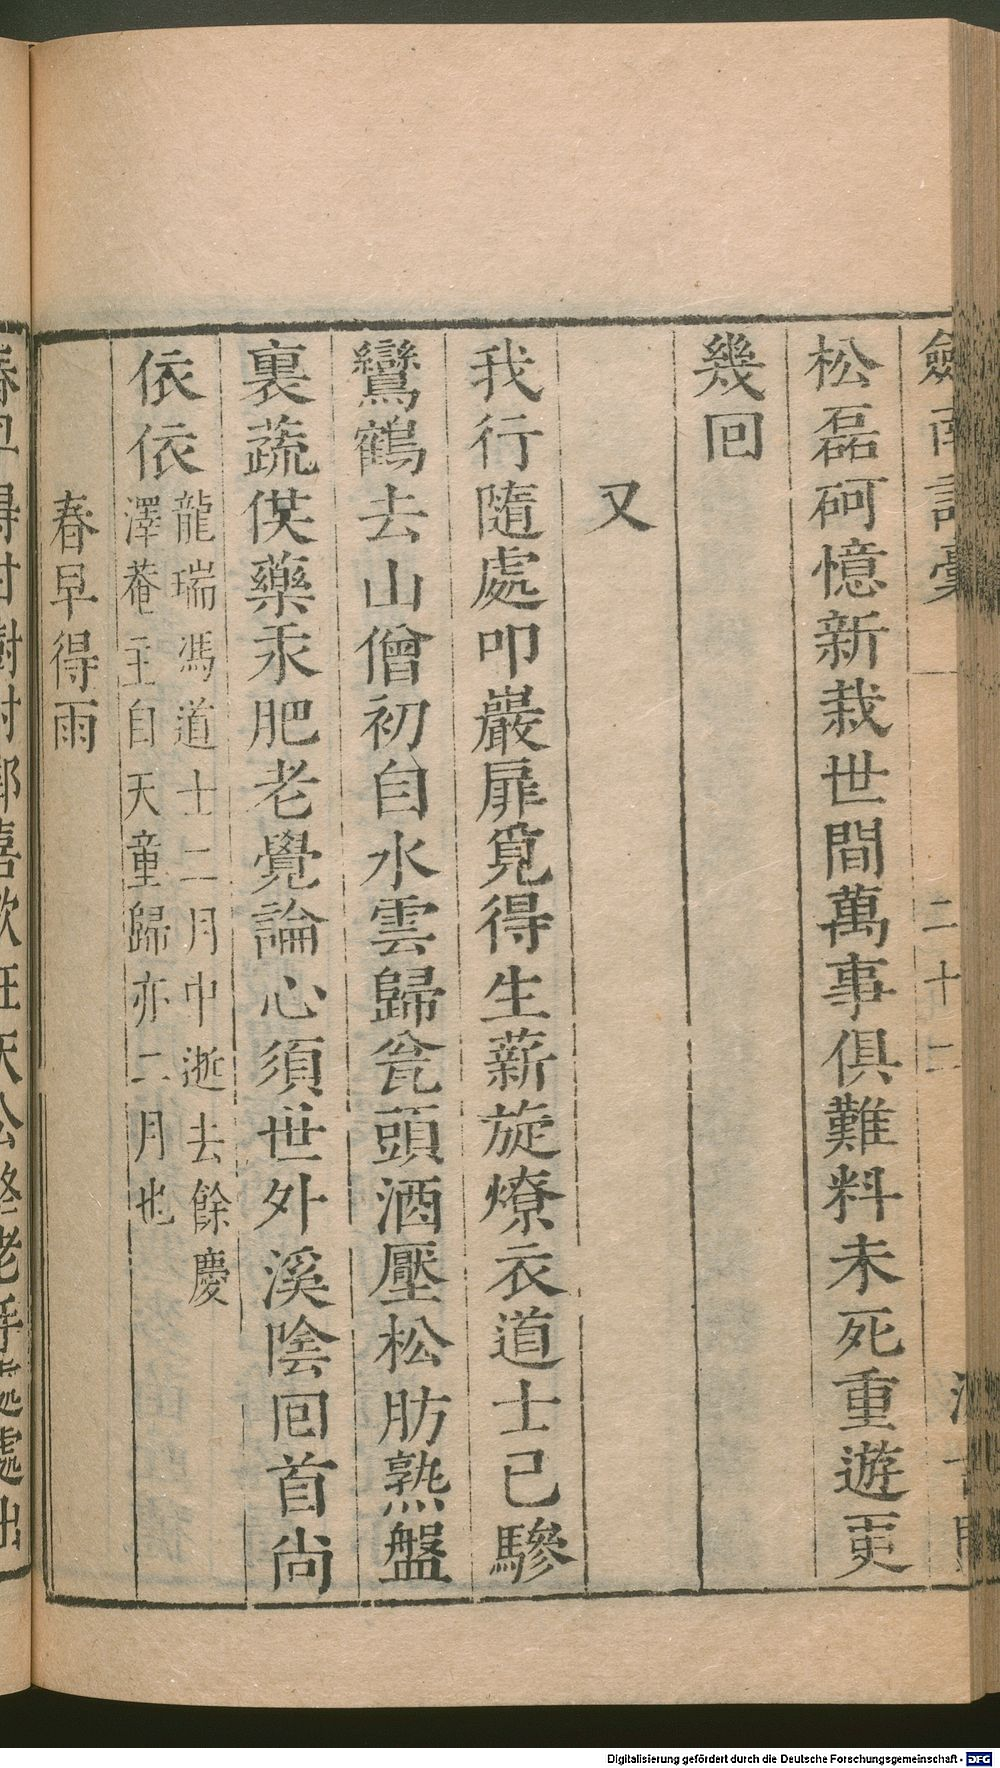 劒南詩稾 二十二
松磊砢憶新栽世間萬事俱難料未死重遊更
幾回
又
我行隨處叩巖扉覓得生薪旋燎衣道士已驂
鸞鶴去山僧初自水雲歸瓮頭酒壓松肪熟盤
裏蔬供藥汞肥老覺論心須世外溪陰回首尚
依依
龍瑞馮道士二月中逝去餘慶
澤菴主自天童歸亦二月也
春早得雨
Digitalisierung gefördert durch die Deutsche Forschungsgemeinschaft - DFG